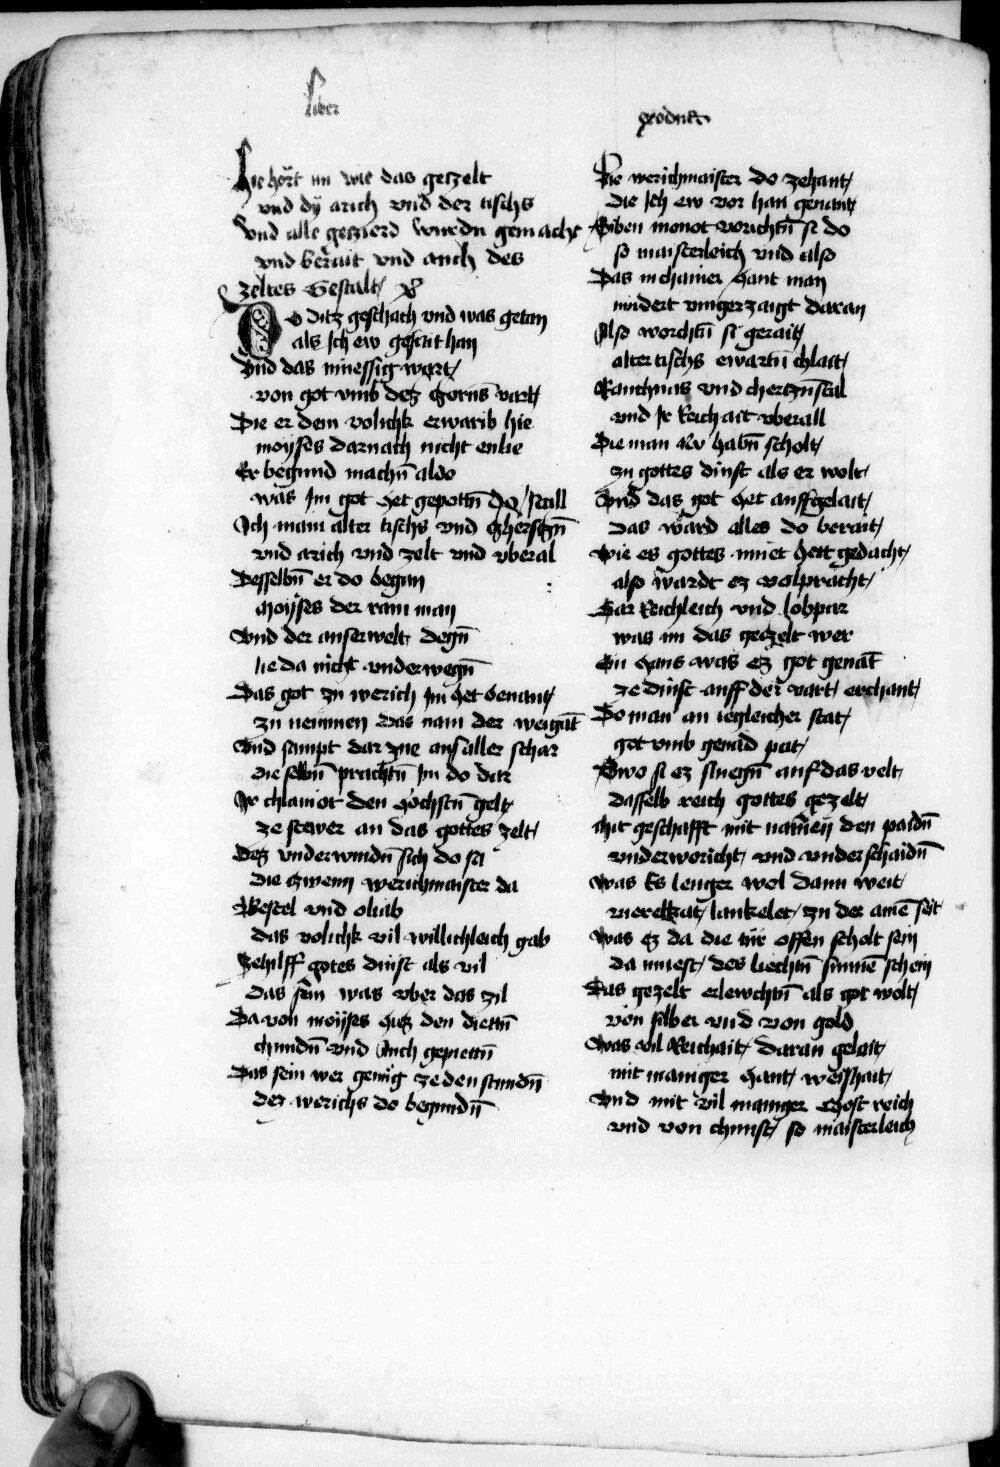 Liber
exodus
Hie hört nu wie das geczelt
vnd dÿ arich vnd der tischs
Vnd alle geczierd wurdn gemacht
vnd berait vnd auch des
zeltes Gestalt
Do ditz geschach vnd was getan
als Ich ew gesait han
Vnd das muessig wart
von got vmb dez zorns vart
Die er dem volichk erwarib hie
moÿses darnach nicht enlie
Er begund machn̄ aldo
was Im got het gepottn̄ do
Ich main alter tischs vnd
vnd arich vnd zelt vnd vberal
Desselbn̄ er do began
moÿses der rain man
Vnd der auserwelt degn̄
lie da nicht vnderwegn̄
Das got zu werich Im het benant
zu nemmen das nam der weigāt
Vnd sampt dar zue aus aller schar
die selbn̄ prachtn̄ Im do dar
Ir chlainot den hochstn̄ gelt
ze stewer an das gottes zelt
Dez vnderwundn̄ sich do sa
die zwenn werichmaister da
Beseel vnd oliab
das volichk vil willichleich gab
Zehilff gotes dinst als vil
das sein was vber das zil
Da von moÿses hiez den diettn̄
chundn̄ vnd Auch gepiettn̄
Das sein wer genug ze den stundn̄
dez werichs do begundn̄
Die werichmaister do zehant
die Ich ew vor han genant
Siben monot worichtn̄ si do
so maisterleich vnd also
Das mchainer hant man
nindert vinger zaigt daran
Also worchtn̄ si gerait
alter tischs ewartn̄ chlait
Rauchuas vnd chertznstal
vnd Ir Reichait vberall
Die man habn̄ scholt
zu gottes dinst als er wolt
Vnd das got het auffgelait
das ward alles do berait
Wie es gottes muet hett gedacht
also wardt ez volpracht
Gar Reichleich vnd lobpar
was nu das geczelt wer
Ein haus was ez got genāt
ze dinst auff der vart erchant
Do man an iegleicher stat
got vmb genad pat
Swo si ez sluegn̄ auf das velt
dasselb reich gottes gezelt
Hit geschafft mit namen den paidn̄
vnderworicht vnd vnderschaidn̄
Was Es lenger wol dann weit
vierekkat lankelet zu der ainē seit
Was ez da die tür offen scholt sein
da muest des liechtn̄ sunnē schein
Das gezelt erlewchtn̄ als got wolt
von silber vnd von gold
Was vil Reichait daran gelait
mit maniger hant weishait
Vnd mit vil maniger chost reich
vnd von chunst so maisterleich